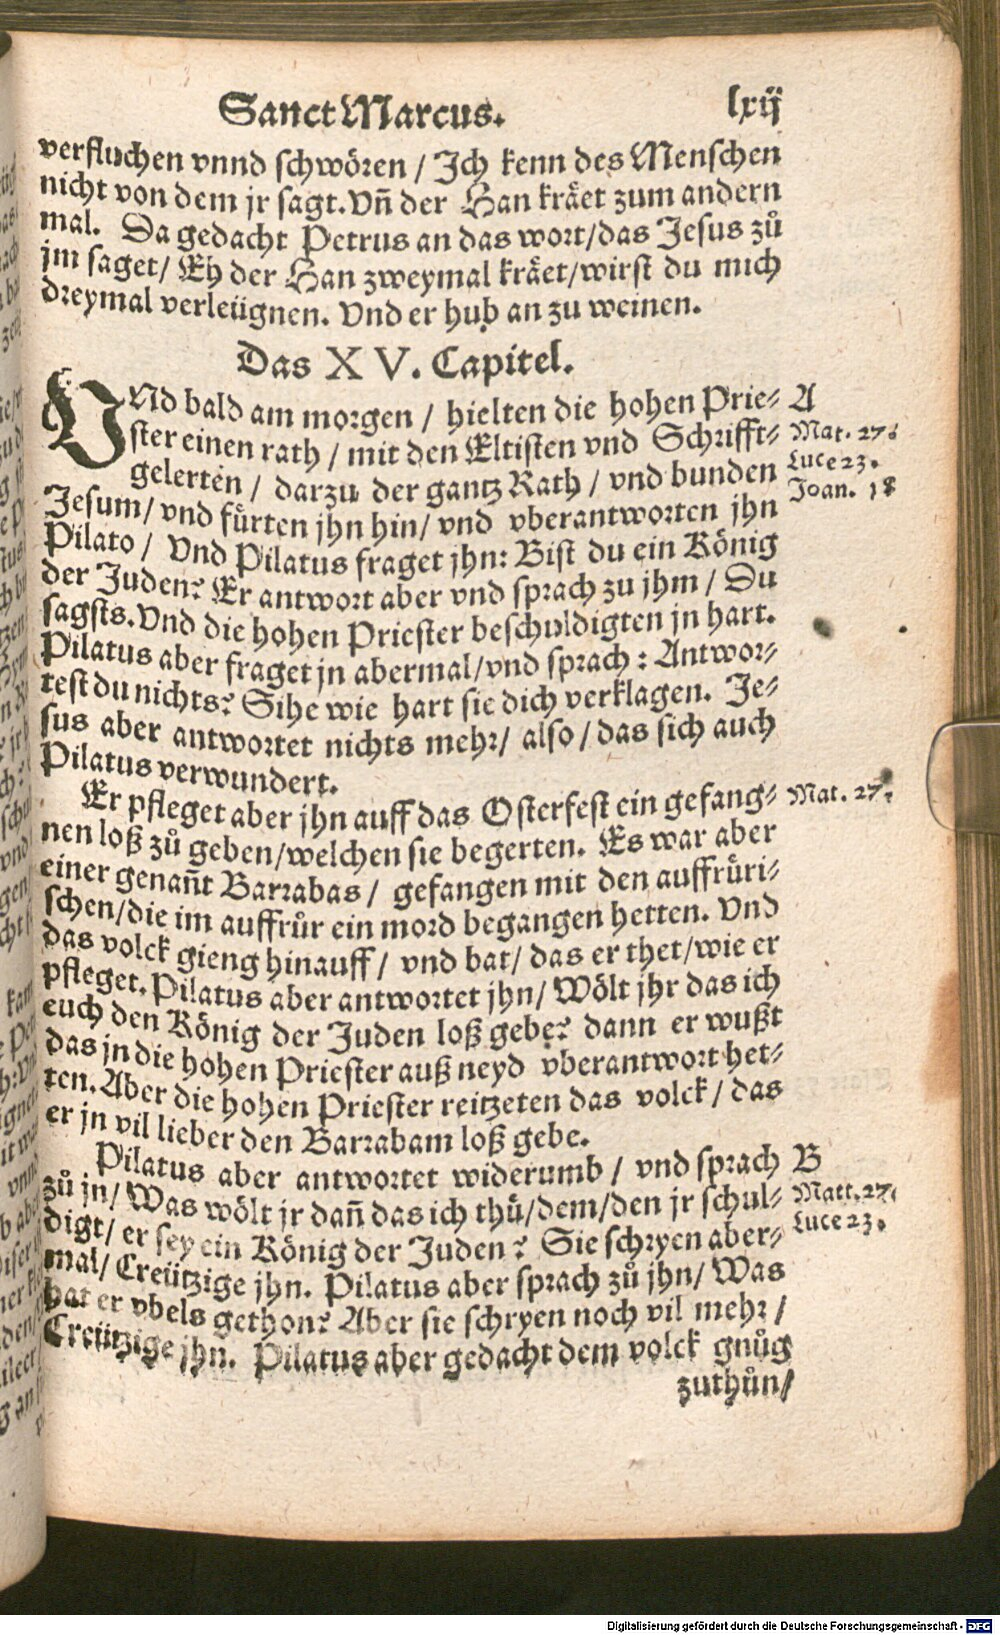 Sanct Marcus. lxij
verfluchen vnnd schwören / Jch kenn des Menschen
nicht von dem jr sagt. Vn̄ der Han kräet zum andern
mal. Da gedacht Petrus an das wort/das Jesus zů
jm saget/ Eh der Han zweymal kräet/wirst du mich
dreymal verleügnen. Vnd er hub an zu weinen.
Das XV. Capitel.
VNd bald am morgen / hielten die hohen Prie- A
ster einen rath / mit den Eltisten vnd Schrifft- Mat. 27.
gelerten / darzu der gantz Rath / vnd bunden Luce 23.
Jesum/ vnd fůrten jhn hin/ vnd vberantworten jhn Joan. 18
Pilato / Vnd Pilatus fraget jhn: Bist du ein König
der Juden? Er antwort aber vnd sprach zu jhm / Du
sagsts. Vnd die hohen Priester beschuldigten jn hart.
Pilatus aber fraget jn abermal/vnd sprach : Antwor-
test du nichts? Sihe wie hart sie dich verklagen. Je-
sus aber antwortet nichts mehr/ also / das sich auch
Pilatus verwundert.
Er pfleget aber jhn auff das Osterfest ein gefang- Mat. 27.
nen loß zů geben/welchen sie begerten. Es war aber
einer genan̄t Barrabas / gefangen mit den auffrůri-
schen/die im auffrůr ein mord begangen hetten. Vnd
das volck gieng hinauff / vnd bat/ das er thet/wie er
pfleget. Pilatus aber antwortet jhn/ Wölt jhr das ich
euch den König der Juden loß gebe? dann er wußt
das jn die hohen Priester auß neyd vberantwort het-
ten. Aber die hohen Priester reitzeten das volck / das
er jn vil lieber den Barrabam loß gebe.
Pilatus aber antwortet widerumb / vnd sprach B
zů jn/ Was wölt jr dan̄ das ich thů/dem/den jr schul- Matt. 27.
digt/ er sey ein König der Juden? Sie schryen aber- Luce 23.
mal/ Creützige jhn. Pilatus aber sprach zů jhn/ Was
hat er vbels gethon? Aber sie schryen noch vil mehr /
Creützige jhn. Pilatus aber gedacht dem volck gnůg
zuthůn/
Digitalisierung gefördert durch die Deutsche Forschungsgemeinschaft - DFG